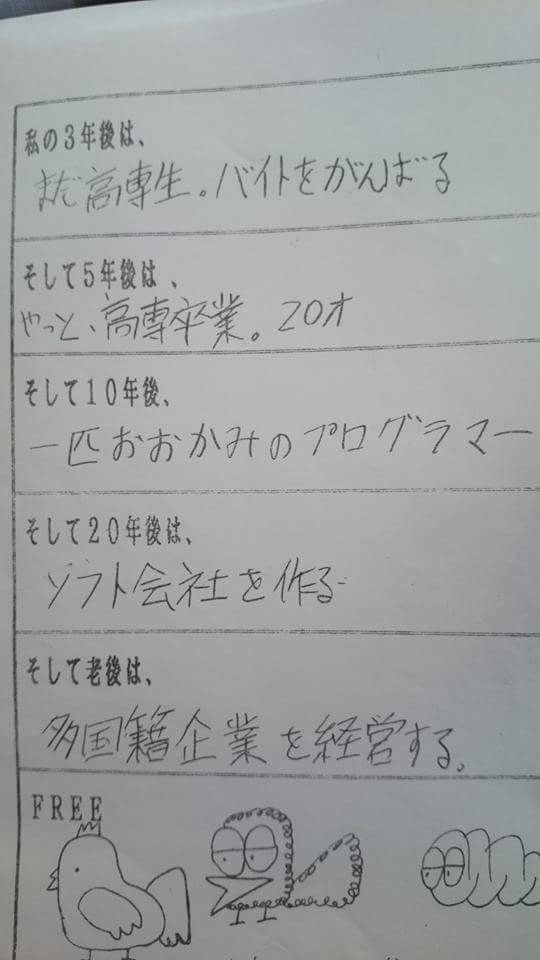 私の3年後は、
まだ高専生。バイトをがんばる
そして5年後は、
やっと、高専卒業。20才
そして10年後、
一匹おおかみのプログラマー
そして20年後は、
ソフト会社を作る
そして老後は、
多国籍企業を経営する。
FREE